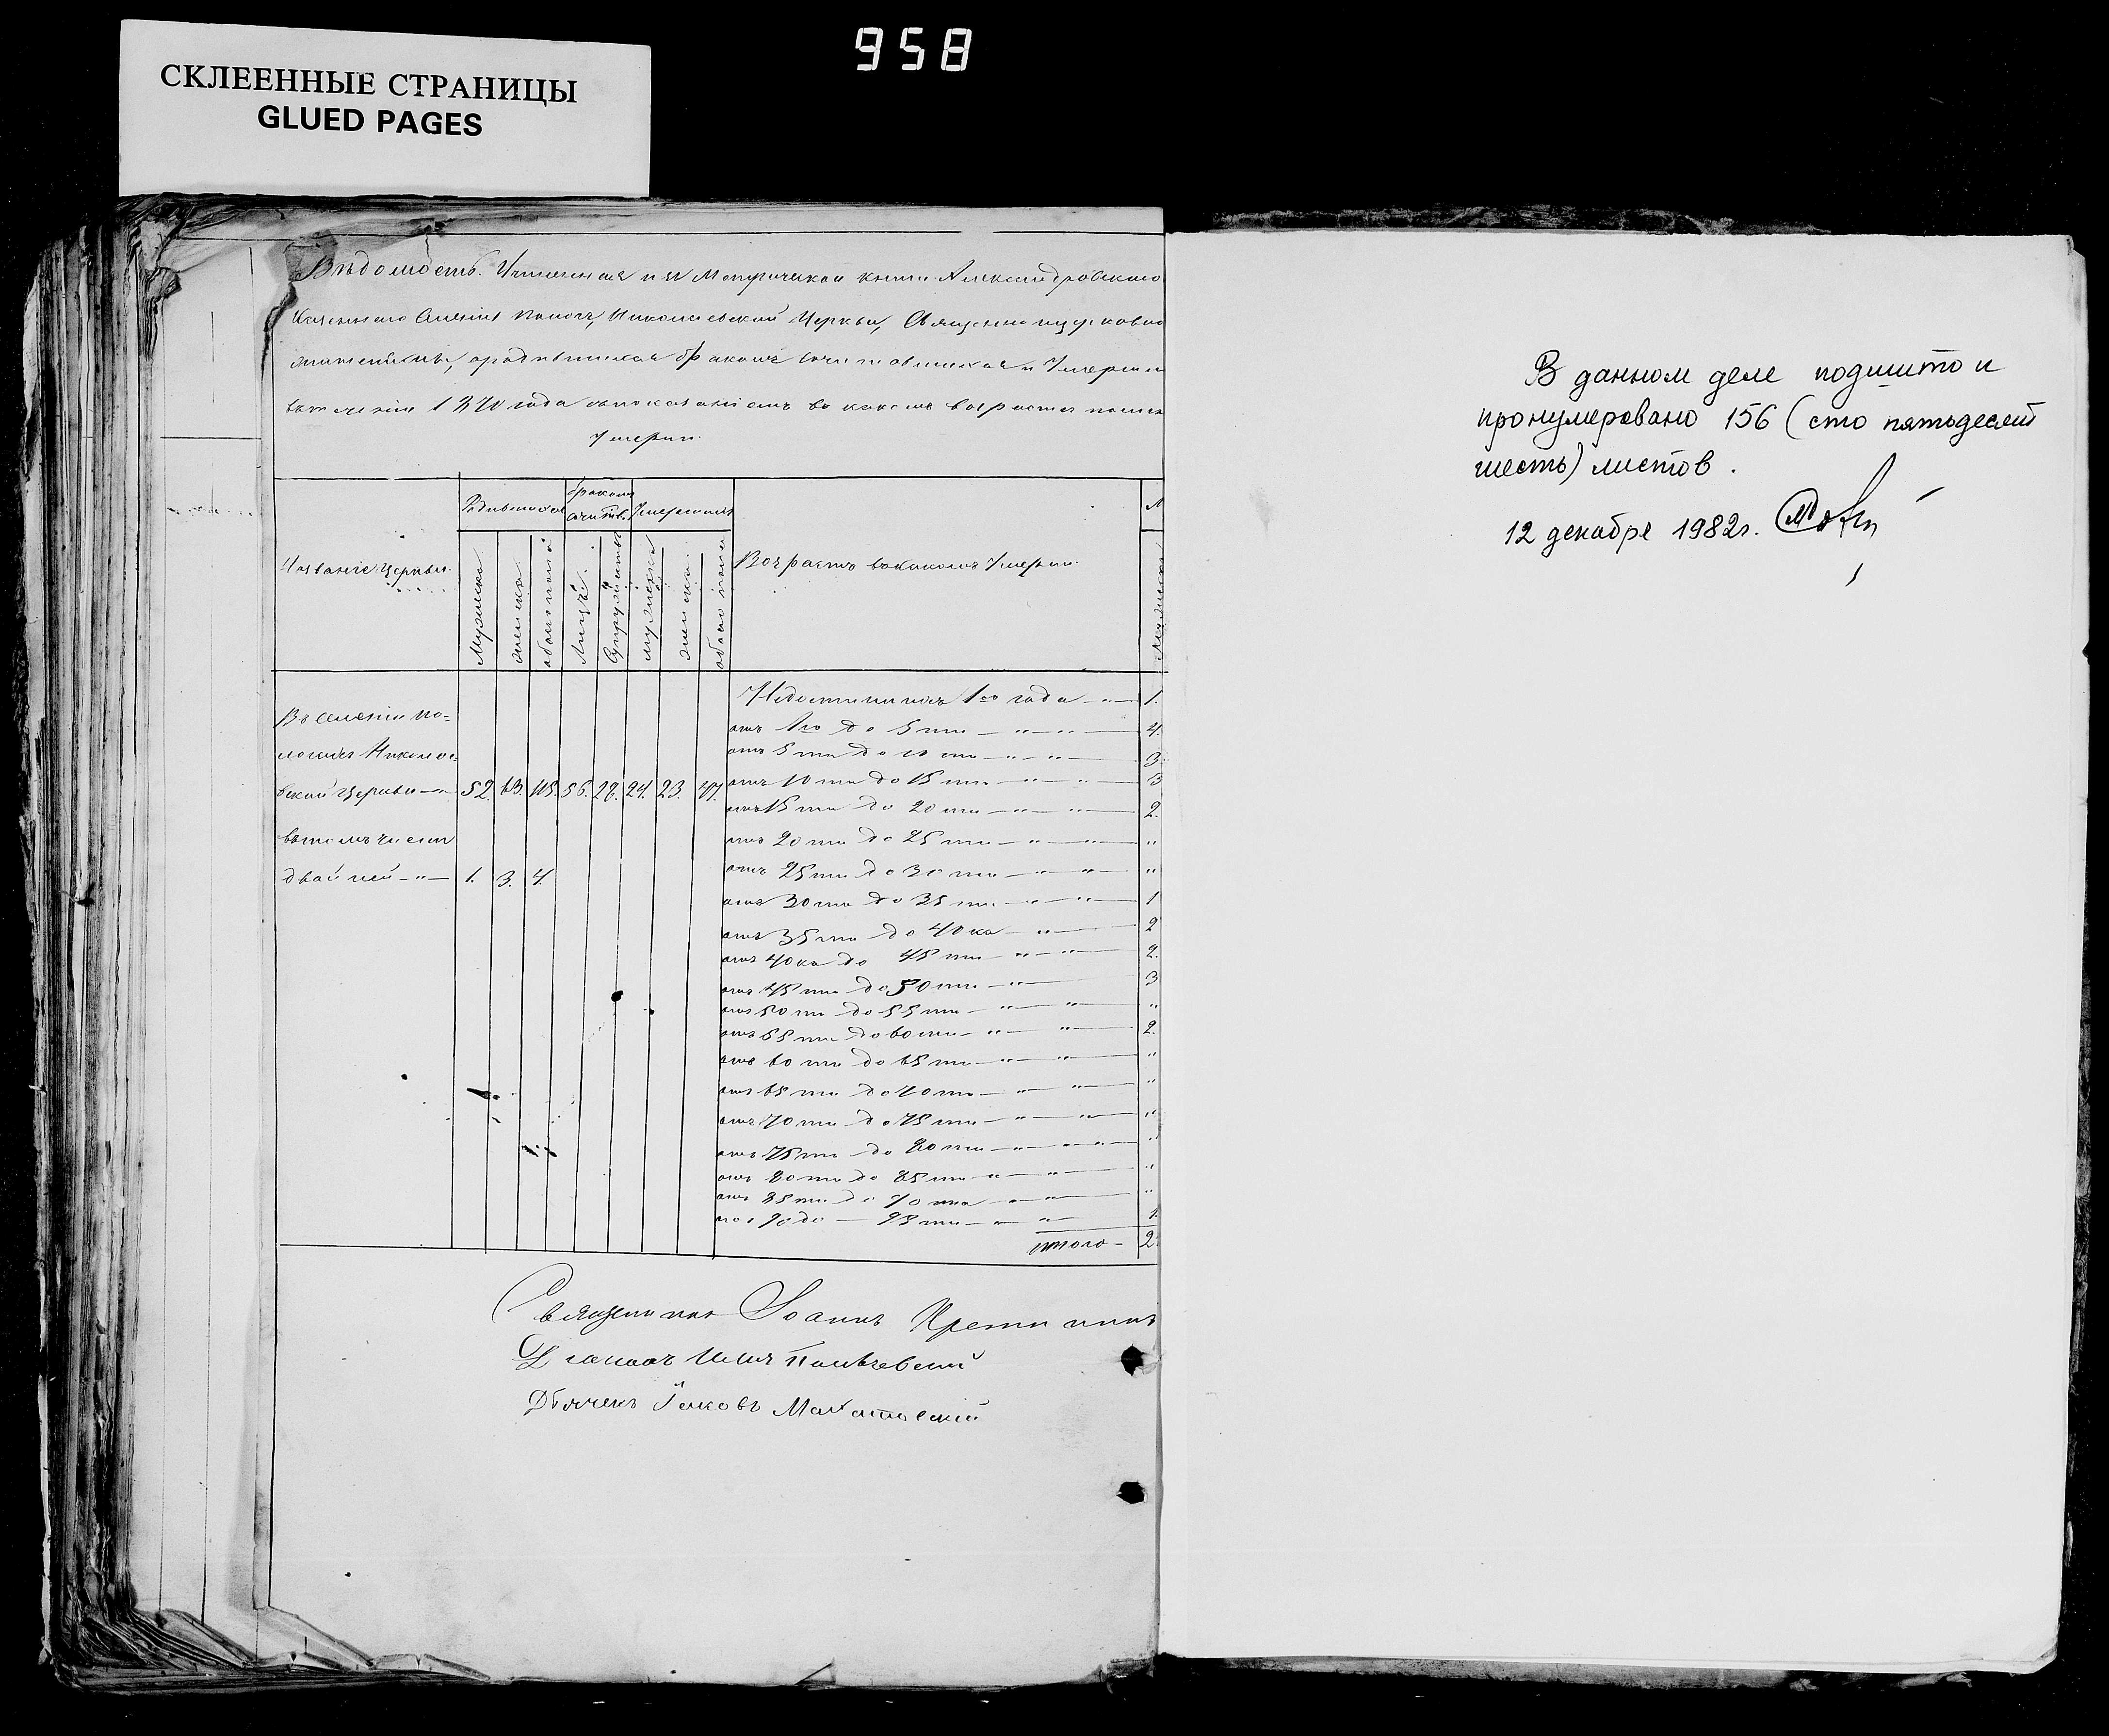 958
СКЛЕЕННЫЕ СТРАНИЦЫ
GLUED PAGES
Вѣдомость. Учиненная изъ Метрической книги Александровского
Николаевской Церкви, Священноцерковно
бракомъ
1870 года въ какомъ возрасте
Умерли.
Родившихся
бракомъ
сочетав.
Умершихъ
Названіе Церкви.
Мужска
женска
обоего пола
Лицъ.
Супружествъ
мужска
женска
обоего пола
Возрастъ въ какомъ Умерли.
Мужска
Въ селеніи По-
Николае-
вской Церкви 52. 63. 115. 56. 28. 24. 23. 47.
въ томъ числѣ
двойней 1. 3. 4.
Недостигшихъ 1го года 1.
отъ 1го до 5ти 4.
отъ 5ти до 10ти 3.
отъ 10ти до 15ти 3
отъ 15ти до 20ти 2.
отъ 20ти до 25ти "
отъ 25ти до 30ти "
отъ 30ти до 35ти 1
отъ 35ти до 40ка 2
отъ 40ка до 45ти 2.
отъ 45ти до 50ти 3
отъ 50ти до 55ти "
отъ 55ти до 60ти 2.
отъ 60ти до 65ти "
отъ 65ти до 70ти "
отъ 70ти до 75ти "
отъ 75ти до 80ти "
отъ 80ти до 85ти "
отъ 85ти до 90та "
90 до 95ти 1.
итого 2
Священникъ Іоаннъ
Діаконъ
Дьячекъ Іаковъ
В данном деле подшито и
пронумеровано 156 (сто пятьдесят
шесть) листов.
12 декабре 1982г.